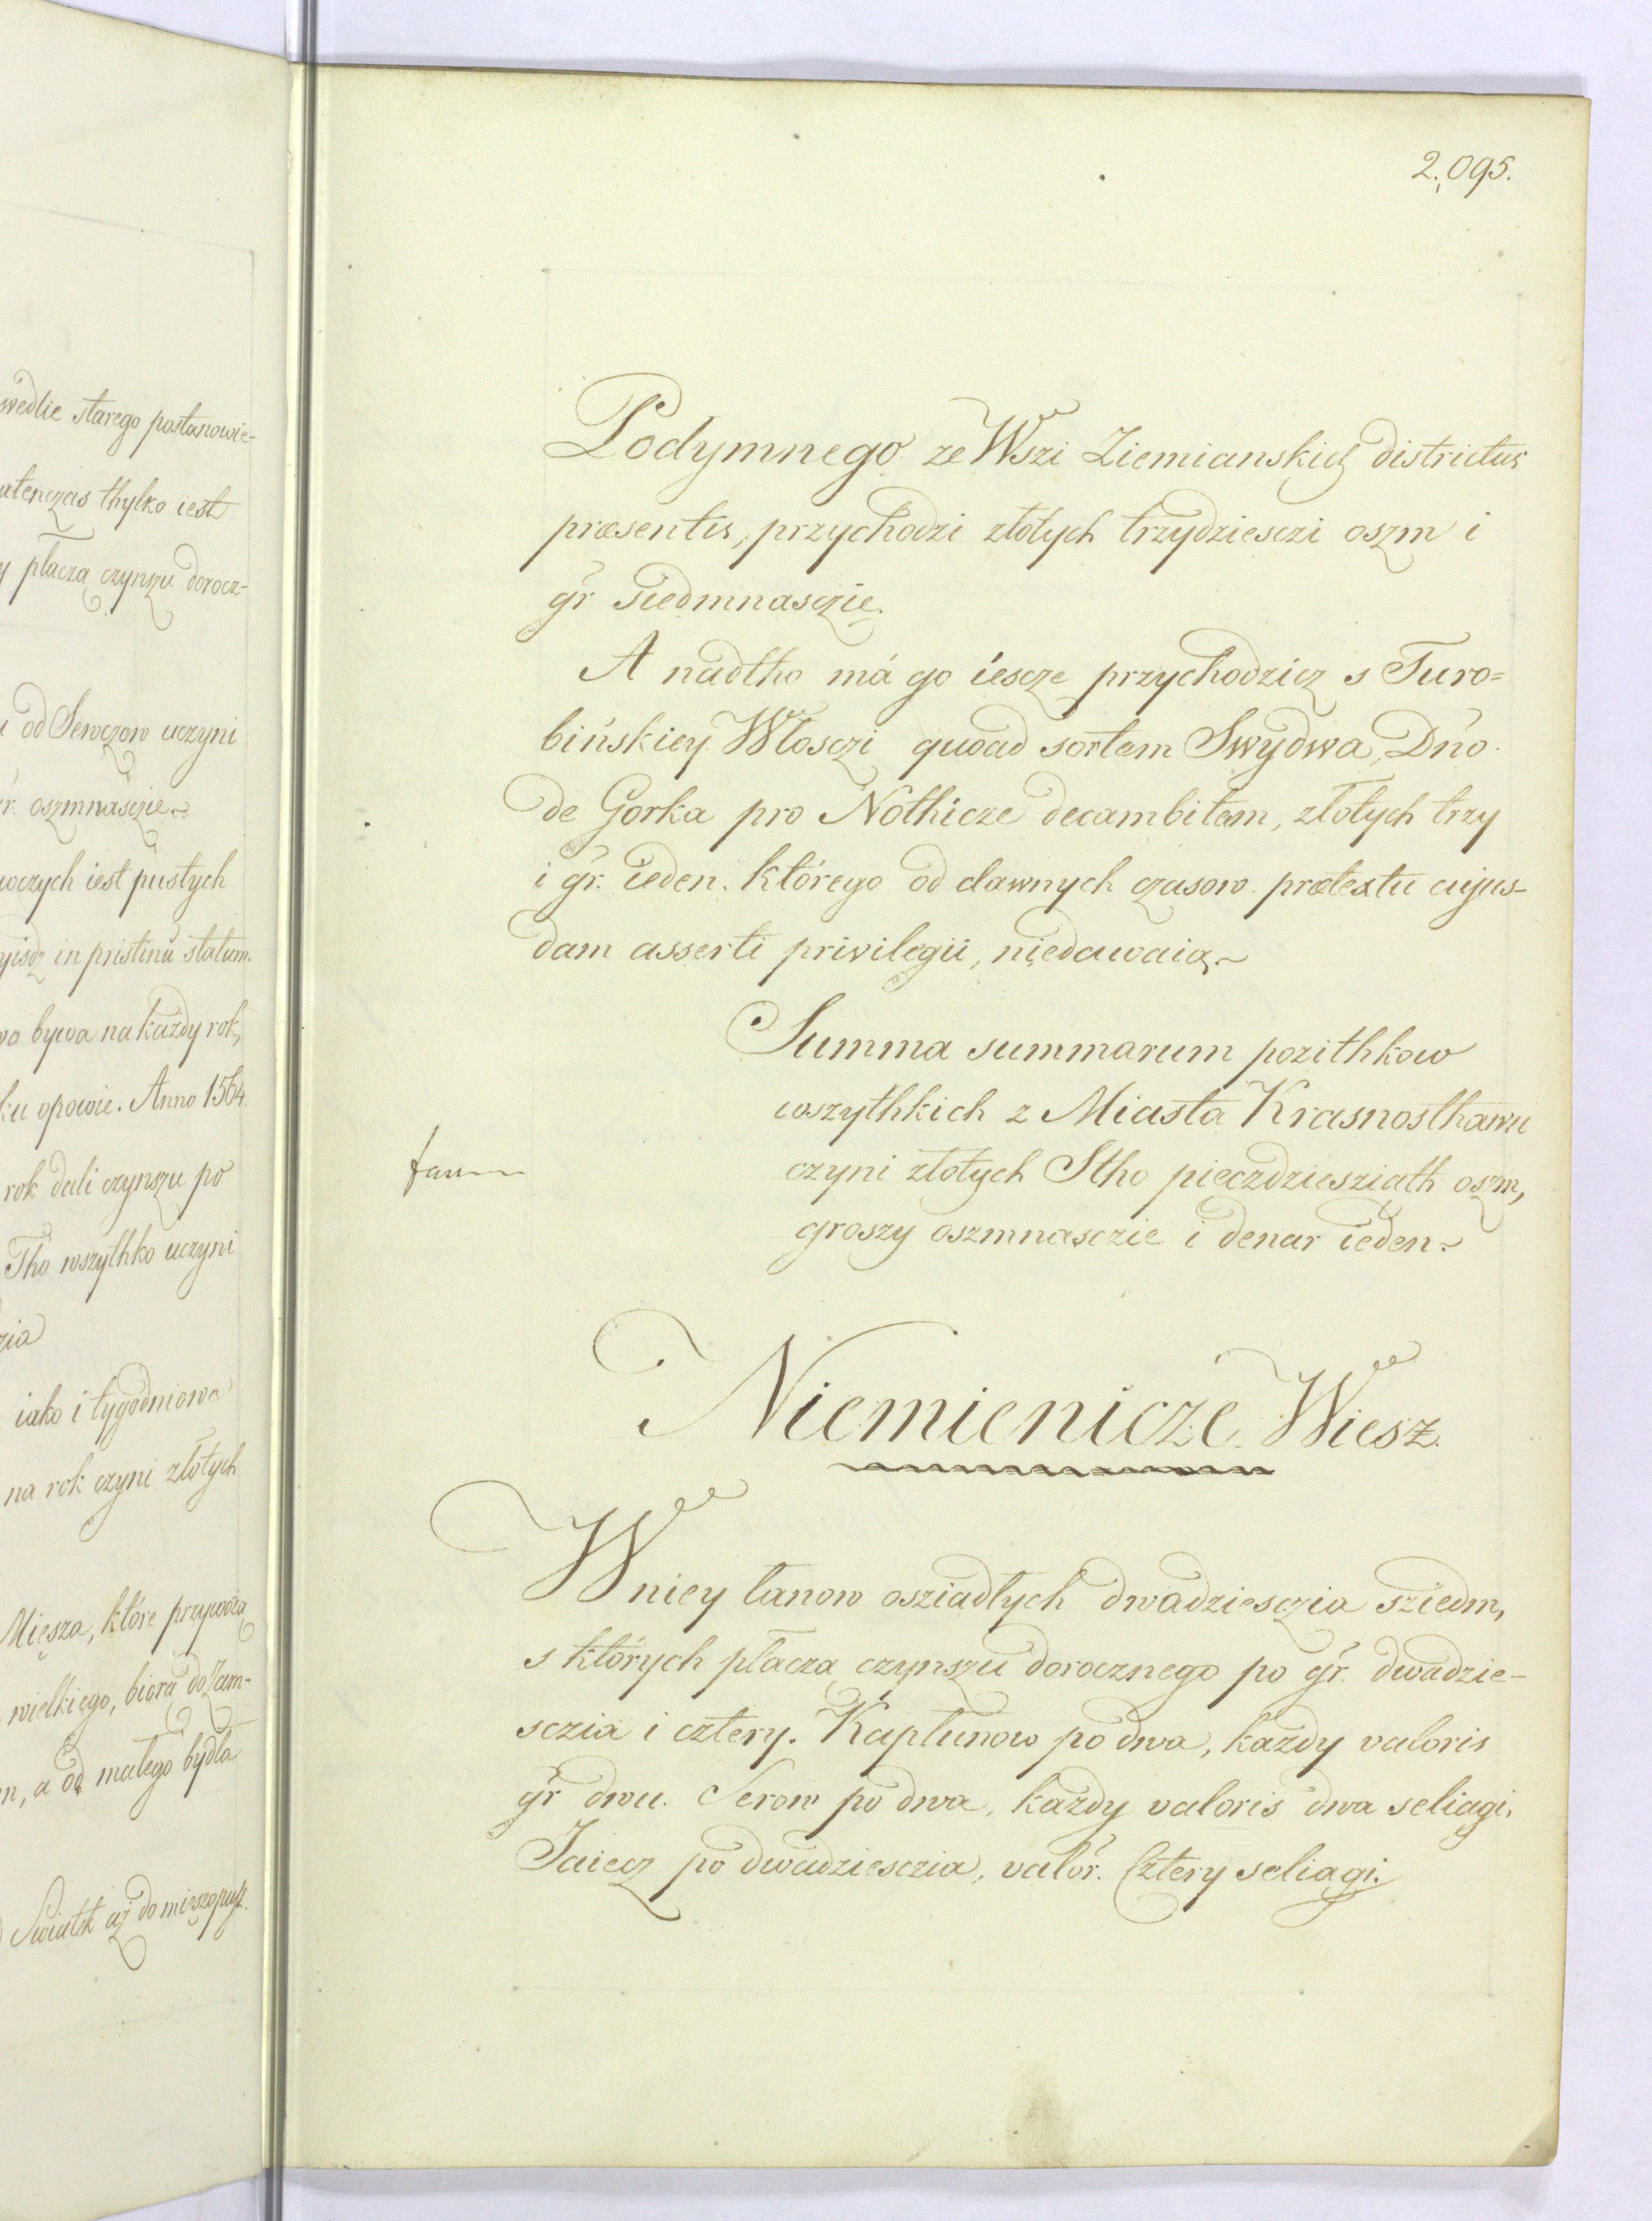 wedlie starego postanowie-
atenczas thylko iest
płaczą czynszu dorocz-
od Sewczow uczyni
oszmnasczie
iest pustych
in pristinu statum.
bywa na każdy rok,
ku opowie. Anno 1564.
rok dali czynszu po
Tho wszythko uczyni
iako i tygodniowe
na rok czyni złotych
Mięsza, które przywożą
wielkiego, biorą do Zam-
a od małego bydła
Swiątk aż do mięszopust.
2,095.
Podymnego ze Wszi Ziemianskich districtus
præsentis, przychodzi złotych trzydziesczi oszm i
gr siedmnasczie.
A nadtho má go iescze przychodzicz s Turo=
bińskiey Włosczi quoad sortem Swydwa, Dno
de Gorka pro Nothicze decambitem, złotych trzy
i gr. ieden. którego od dawnych czasow prætextu cujus-
dam asserti privilegii, niedawaią
Summa summarum pozithkow
wszythkich z Miasta Krasnosthawu
czyni złotych Stho pieczdziesziath oszm,
groszy oszmnasczie i denar ieden.
Niemienicze Wiesz.
W niey łanow osziadłych dwadziesczia sziedm,
s których płaczą czynszu dorocznego po gr. dwadzie-
sczia i cztery. Kapłunow po dwa, każdy valoris
gr dwu. Serow po dwa, każdy valoris dwa seliagi.
Jaiecz po dwadziesczia, valor. Cztery seliagi.